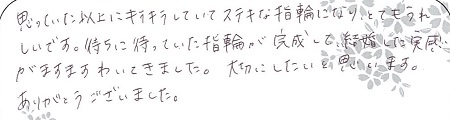 思っていた以上にキラキラしていてステキな指輪になり、とてもうれ
しいです。待ちに待っていた指輪が完成して、結婚した実感
がますますわいてきました。大切にしたいと思います。
ありがとうございました。